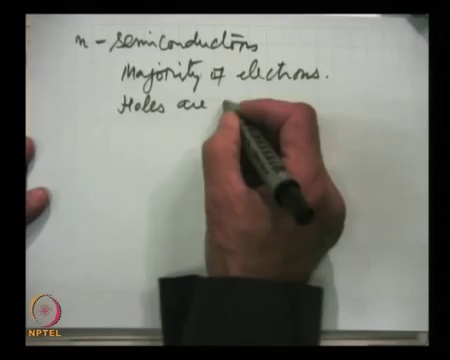 n - semiconductors
Majority of electrons.
Holes are
NPTEL